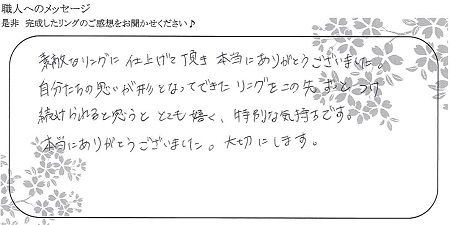 職人へのメッセージ
是非 完成したリングのご感想をお聞かせください♪
素敵なリングに 仕上げて頂き 本当にありがとうございました。
自分たちの思いが形となってできたリングをこの先 ずっとつけ
続けられると思うと とても嬉しく、特別な気持ちです。
本当にありがとうございました。大切にします。